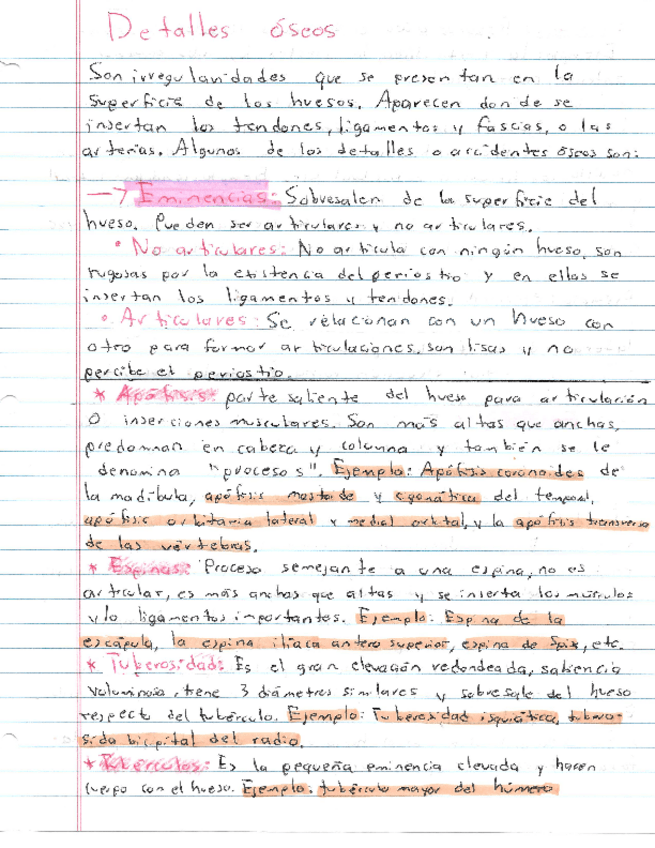 Detalles óseos
Son irregularidades que se presentan en la
superficie de los huesos. Aparecen donde se
insertan los tendones, ligamentos y fascias, o las
arterias. Algunos de los detalles o accidentes óseos son:
→ Eminencias: Sobresalen de la superficie del
hueso. Pueden ser articulares y no articulares.
• No articulares: No articula con ningún hueso, son
rugosas por la existencia del periostio y en ellas se
insertan los ligamentos y tendones.
• Articulares: Se relacionan con un hueso con
otro para formar articulaciones. son lisas y no
percibe el periostio.
* Apófisis: parte saliente del hueso para articulación
o inserciones musculares. Son más altas que anchas,
predomnan en cabeza y columna y también se le
denomina "procesos". Ejemplo: Apófisis coronoides de
la madíbula, apófisis mastoide y cgomática del temporal,
apófisis orbitaria lateral y medial orbital, y la apófisis transversa
de las vértebras.
* Espinas: Proceso semejante a una espina, no es
articular, es más anchas que altas y se inserta los músculos
y/o ligamentos importantes. Ejemplo: Espina de la
escápula, la espina iliaca antero superior, espina de Spix, etc.
* Tuberosidad: Es el gran elevación redondeada, saliencia
voluminosa, tiene 3 diámetros similares y sobresale del hueso
respecto del tubérculo. Ejemplo: Tuberosidad isquiática, tubero-
sida bicipital del radio.
* Tubérculos: Es la pequeña eminencia elevada y hacen
cuerpo con el hueso. Ejemplo: tubérculo mayor del húmero